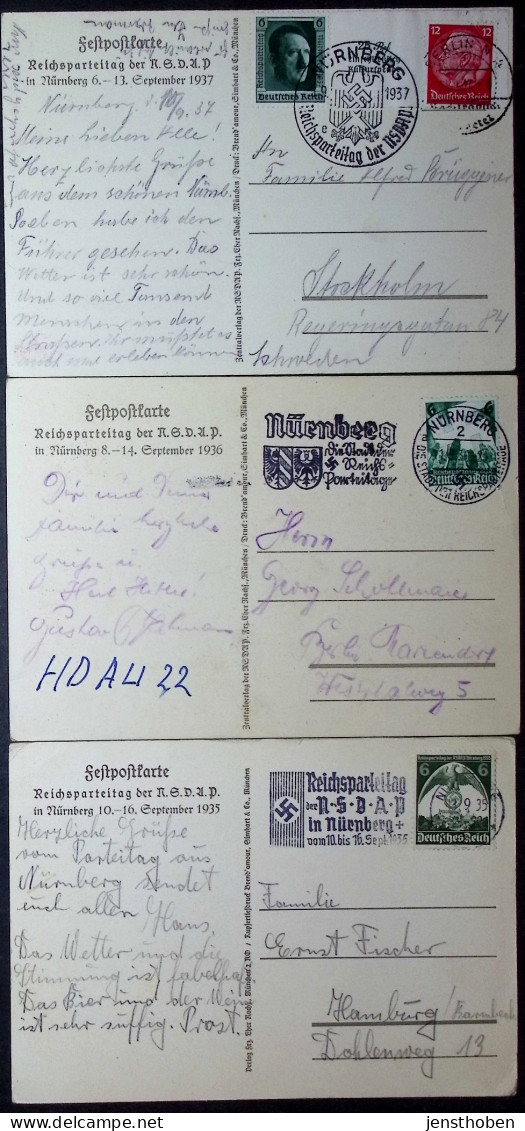 Festpostkarte
Reichsparteitag der N.S.D.A.P.
in Nürnberg 6.–13. September 1937
Nürnberg, d. 10/9.37
Meine lieben Alle!
Herzlichste Grüße
aus dem schönen Nürnb.
Soeben habe ich den
Führer gesehen. Das
Wetter ist sehr schön.
Und so viel Tausend
Menschen in den
Straßen. Ihr müßtet es
auch mal erleben können
Zentralverlag der NSDAP. Frz. Eher Nachf., München / Druck: Brend'amour, Simhart & Co., München
6
Deutsches Reich
NÜRNBERG
1937
Reichsparteitag der NSDAP
12 12
Deutsches Reich
BERLIN
An
Familie Alfred Brüggener
Stockholm
Regeringsgatan 84
Schweden
Festpostkarte
Reichsparteitag der N.S.D.A.P.
in Nürnberg 8.–14. September 1936
Dir und Deiner
Familie herzliche
Grüße u.
Heil Hitler!
Gustav
HDAU 22
Zentralverlag der NSDAP. Frz. Eher Nachf., München / Druck: Brend'amour, Simhart & Co., München
Nürnberg
die Stadt der
Reichs=
Parteitage
6 6
NÜRNBERG
2
Herrn
Georg Schollmaier
Berlin Mariendorf
Westphalweg 5
Festpostkarte
Reichsparteitag der N.S.D.A.P.
in Nürnberg 10.–16. September 1935
Herzliche Grüße
vom Parteitag aus
Nürnberg sendet
euch allen
Hans.
Das Wetter und die
Stimmung ist fabelhaft
Das Bier und der Wein
ist sehr süffig. Prost.
Verlag Frz. Eher Nachf., München 2 NO / Kupfertiefdruck Brend'amour, Simhart & Co., München
Reichsparteitag
der N·S·D·A·P
in Nürnberg +
vom 10. bis 16. Sept. 1935
6 6
9.35
Deutsches Reich
Familie
Ernst Fischer
Hamburg/Barmbeck
Dohlenweg 13
www.delcampe.net
jensthoben